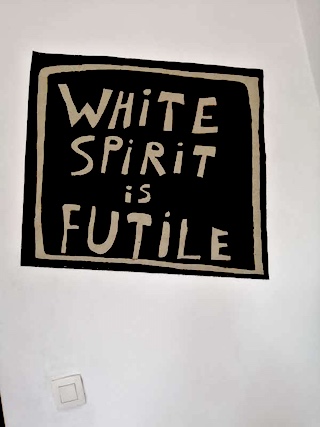 WHiTE
SPiRiT
iS
FUTiLE